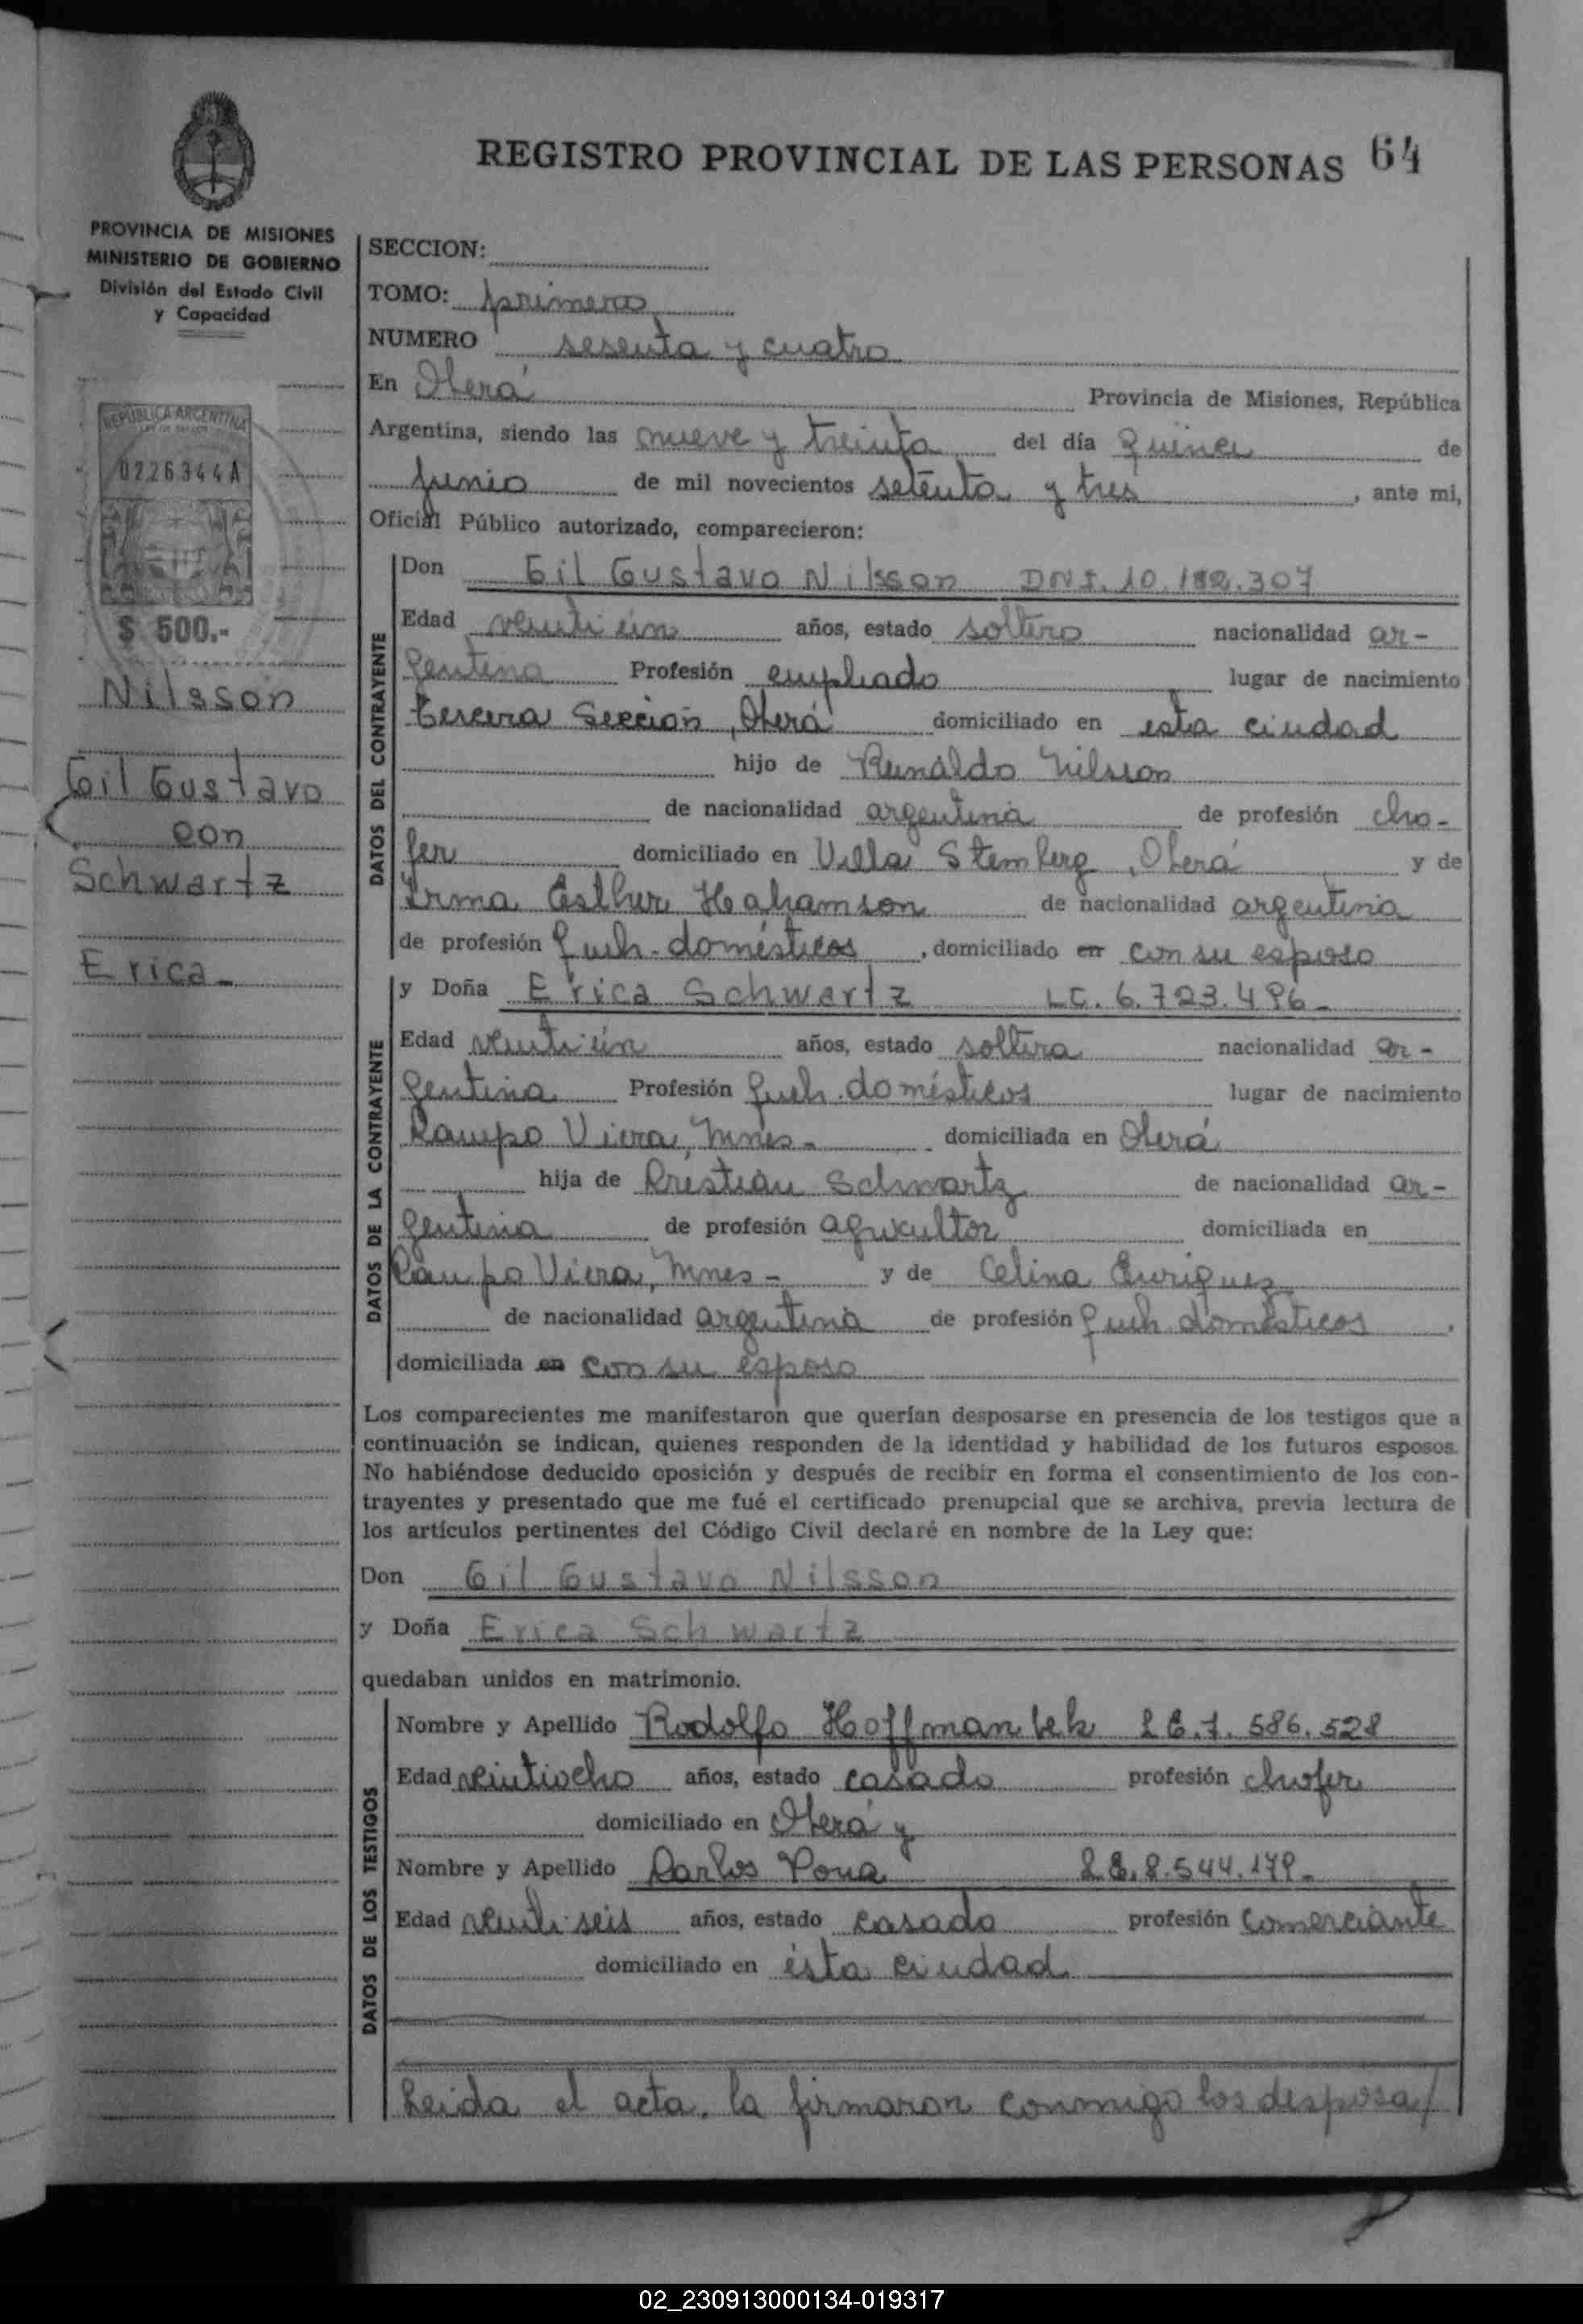 REGISTRO PROVINCIAL DE LAS PERSONAS 64
PROVINCIA DE MISIONES
MINISTERIO DE GOBIERNO
División del Estado Civil
y Capacidad
REPUBLICA ARGENTINA
0226344A
$ 500.-
Nilsson
Gil Gustavo
con
Schwartz
Erica-
SECCION:
TOMO: primero
NUMERO sesenta y cuatro
En Oberá Provincia de Misiones, República
Argentina, siendo las nueve y treinta del día quince de
junio de mil novecientos setenta y tres, ante mi,
Oficial Público autorizado, comparecieron:
DATOS DEL CONTRAYENTE
Don Gil Gustavo Nilsson DNI. 10.182.307
Edad veintiún años, estado soltero nacionalidad ar-
gentina Profesión empleado lugar de nacimiento
tercera Sección, Oberá domiciliado en esta ciudad
hijo de Reinaldo Nilsson
de nacionalidad argentina de profesión cho-
fer domiciliado en Villa Stemberg, Oberá y de
Irma Esther Hahamson de nacionalidad argentina
de profesión queh. domésticos, domiciliado en con su esposo
DATOS DE LA CONTRAYENTE
y Doña Erica Schwartz LC. 6.723.496-
Edad veintiún años, estado soltera nacionalidad ar-
gentina Profesión queh. domésticos lugar de nacimiento
Campo Viera, Mnes- domiciliada en Oberá
hija de Cristián Schwartz de nacionalidad ar-
gentina de profesión agricultor domiciliada en
Campo Viera, Mnes- y de Celina Enriquez
de nacionalidad argentina de profesión queh. domésticos,
domiciliada en con su esposo
Los comparecientes me manifestaron que querían desposarse en presencia de los testigos que a
continuación se indican, quienes responden de la identidad y habilidad de los futuros esposos.
No habiéndose deducido oposición y después de recibir en forma el consentimiento de los con-
trayentes y presentado que me fué el certificado prenupcial que se archiva, previa lectura de
los artículos pertinentes del Código Civil declaré en nombre de la Ley que:
Don Gil Gustavo Nilsson
y Doña Erica Schwartz
quedaban unidos en matrimonio.
DATOS DE LOS TESTIGOS
Nombre y Apellido Rodolfo Hoffmanbek LE.7.586.528
Edad veintiocho años, estado casado profesión chofer
domiciliado en Oberá y
Nombre y Apellido Carlos LE.8.544.179-
Edad veintiseis años, estado casado profesión comerciante
domiciliado en ésta ciudad
Leida el acta, la firmaron conmigo los desposa/
02_230913000134-019317